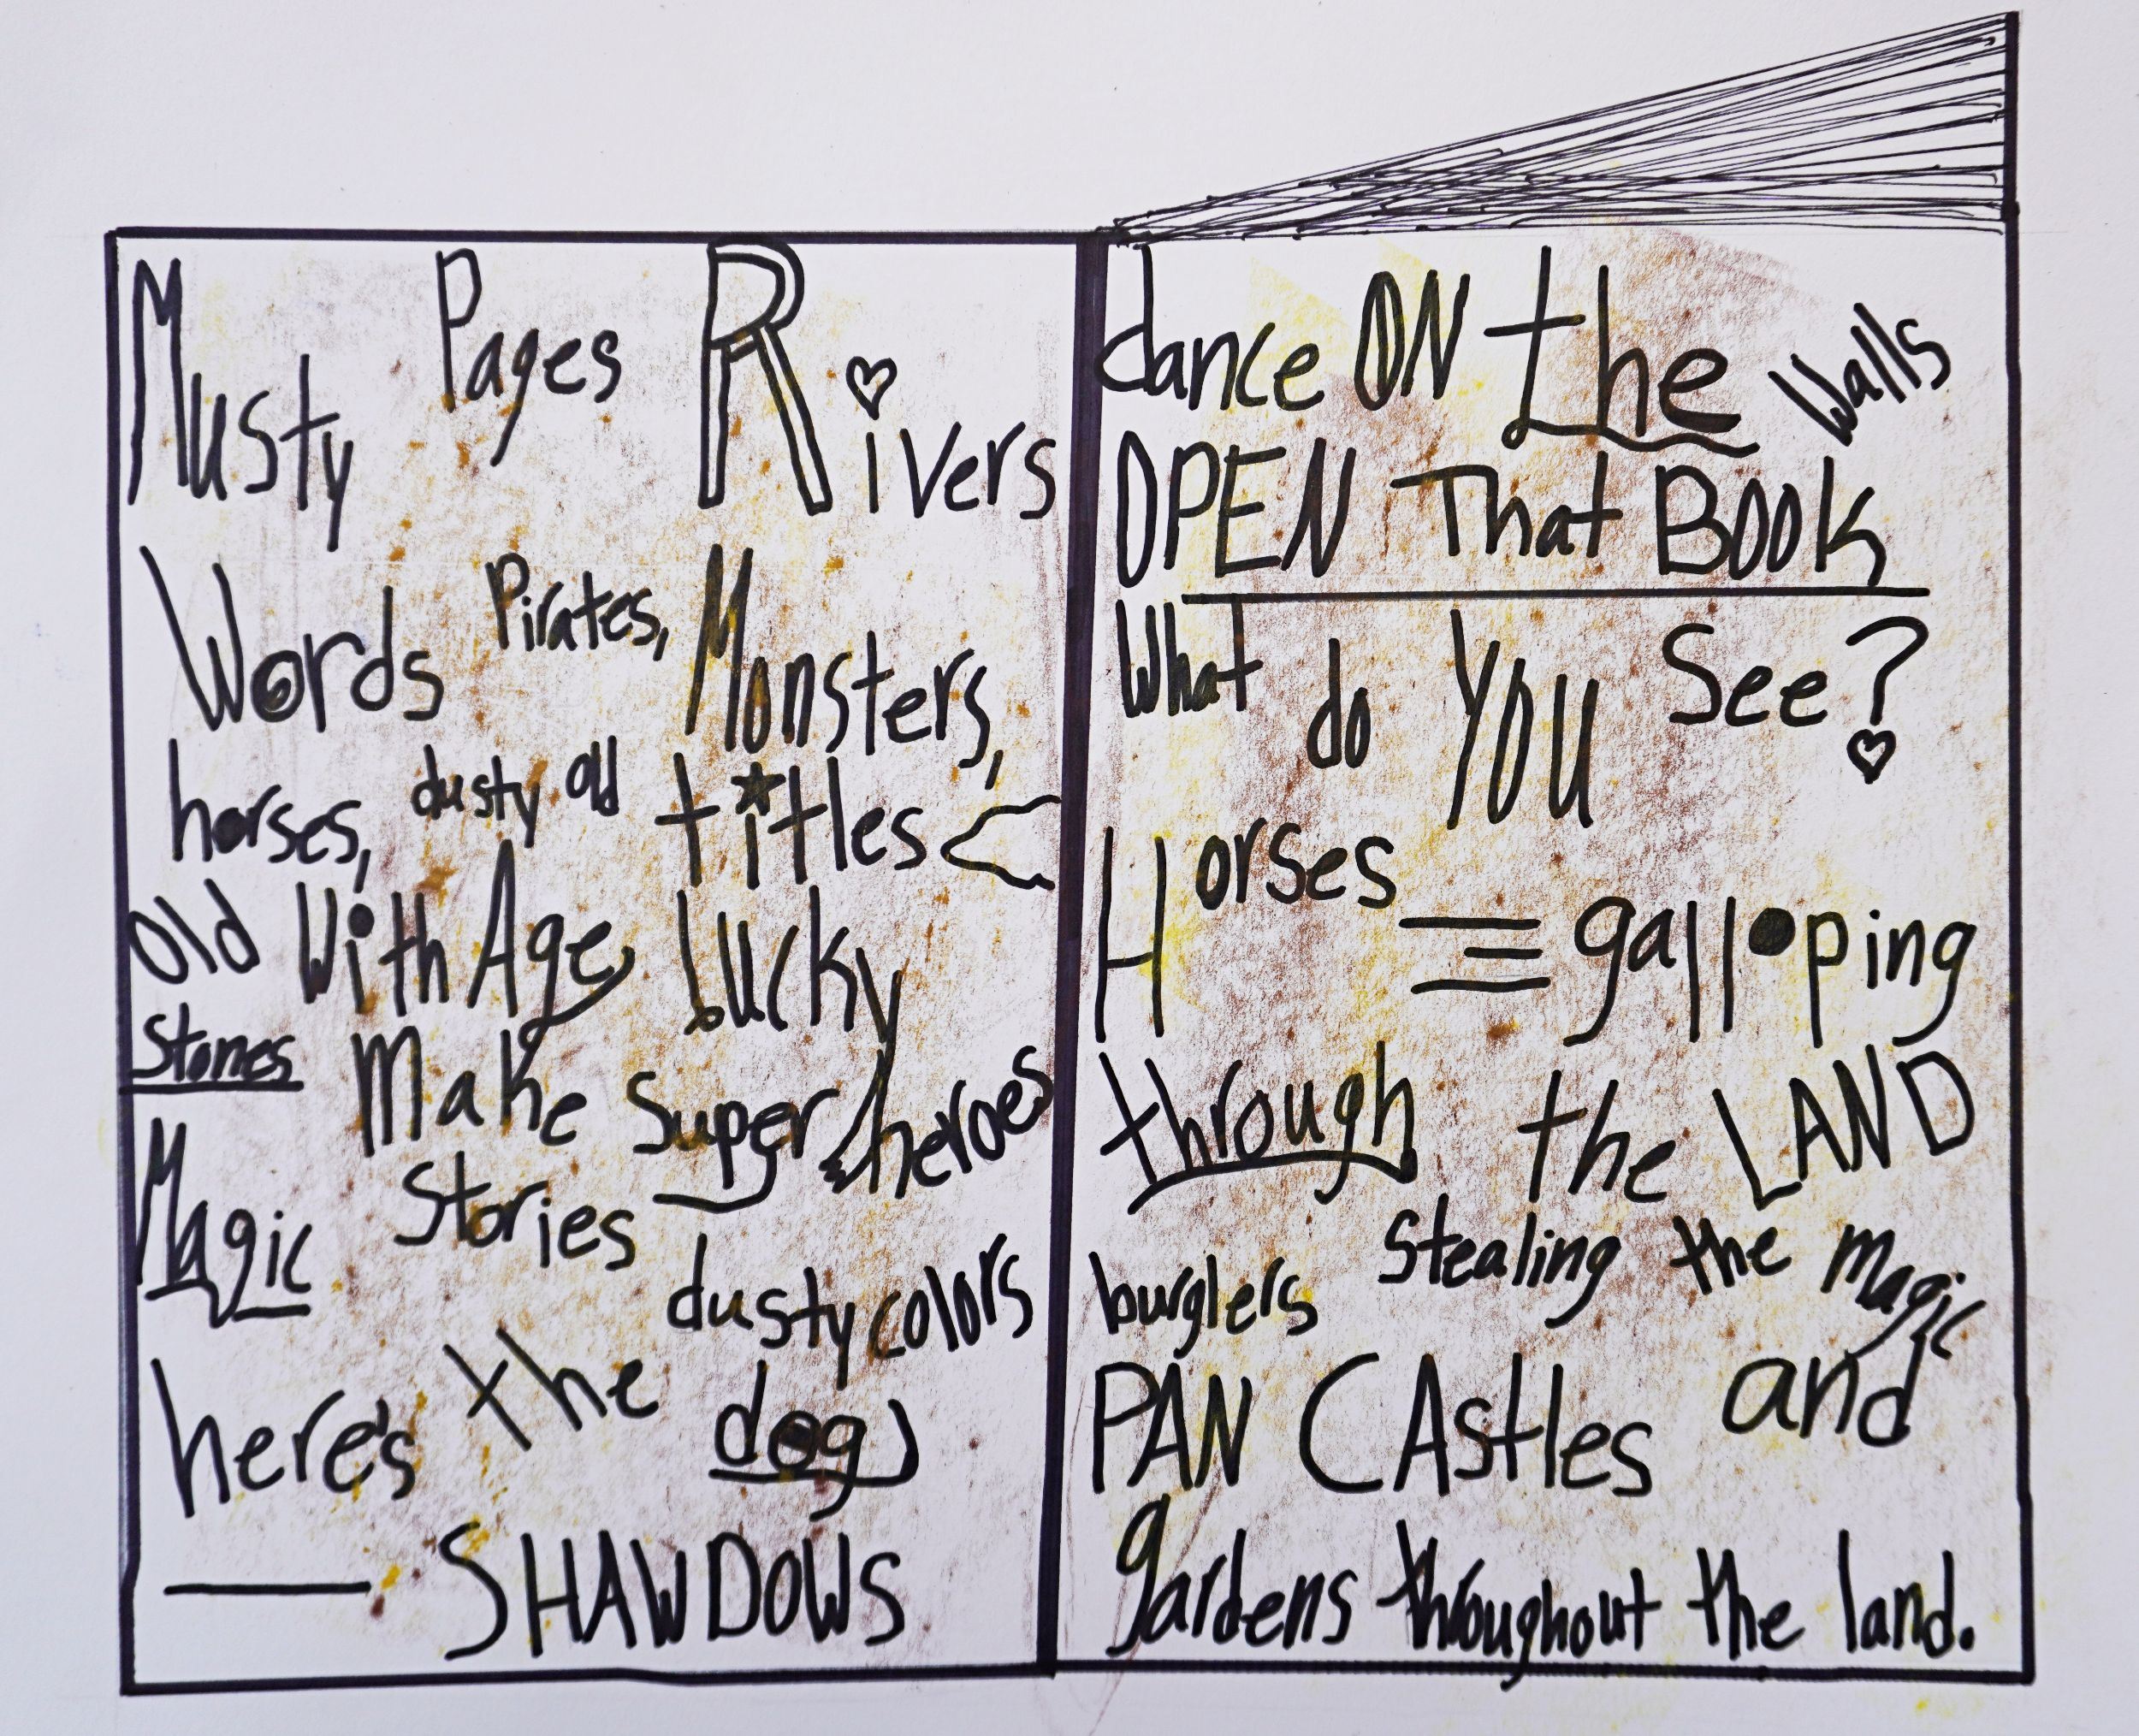 Musty Pages Rivers
Words Pirates, Monsters,
horses, dusty old titles
old With Age Lucky
Stones Make Super heroes
Magic Stories dusty colors
here's the dog
— SHAWDOWS
dance ON the Walls
OPEN That BOOK
What do YOU See?
Horses galloping
through the LAND
burglers stealing the magic
PAN CAstles and
gardens throughout the land.